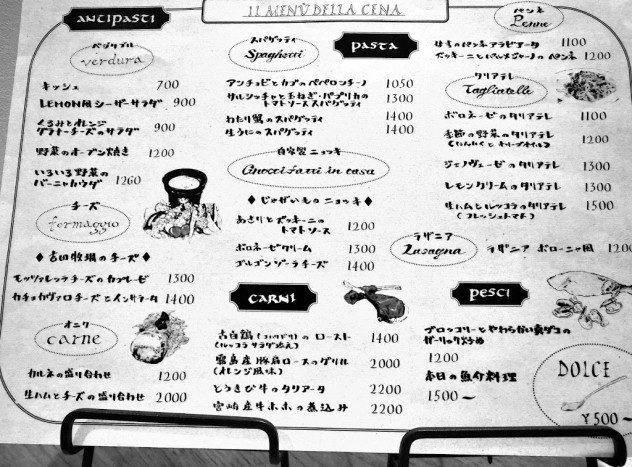 IL MENÙ DELLA CENA
ANTIPASTI
ベジタブル
verdura
キッシュ 700
LEMON風シーザーサラダ 900
くるみとオレンジ
グラナチーズのサラダ 900
野菜のオーブン焼き 1200
いろいろ野菜の
バーニャカウダ 1260
チーズ
formaggio
♦ 吉田牧場のチーズ ♦
モッツァレッラチーズのカプレーゼ 1300
カチョカヴァロチーズとインサラータ 1400
オニク
carne
カルネの盛り合わせ 1200
生ハムとチーズの盛り合わせ 2000
PASTA
スパゲッティ
Spaghetti
アンチョビとカブのペペロンチーノ 1050
サルシッチャと玉ねぎ・パプリカの
トマトソーススパゲッティ 1300
わたり蟹のスパゲッティ 1400
生うにのスパゲッティ 1400
自家製ニョッキ
Gnocci fatti in casa
♦ じゃがいものニョッキ ♦
あさりとズッキーニの
トマトソース 1200
ボロネーゼクリーム 1300
ゴルゴンゾーラチーズ 1400
CARNI
吉白鶏
のロースト 1400
(ルッコラサラダ添え)
霧島産豚肩ロースのグリル 2000
(オレンジ風味)
とうきび牛のタリアータ 2200
宮崎産牛ホホの煮込み 2200
ペンネ
Penne
ペンネアラビアータ 1100
ズッキーニとパルメジャーノのペンネ 1200
タリアテレ
Tagliatelle
ボロネーゼのタリアテレ 1100
季節の野菜のタリアテレ 1200
(にんにくとオリーブオイル)
ジェノヴェーゼのタリアテレ 1300
レモンクリームのタリアテレ 1300
生ハムとルッコラのタリアテレ 1500
(フレッシュトマト)
ラザニア
Lasagna
ラザニア ボローニャ風 1200
PESCI
ブロッコリーとやわらかい真ダコの
ガーリック炒め
1200
本日の魚介料理
1500〜
DOLCE
¥500〜